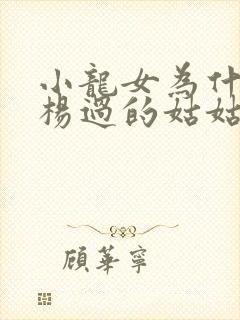 小龍女為什
楊過的姑姑
顧華寧